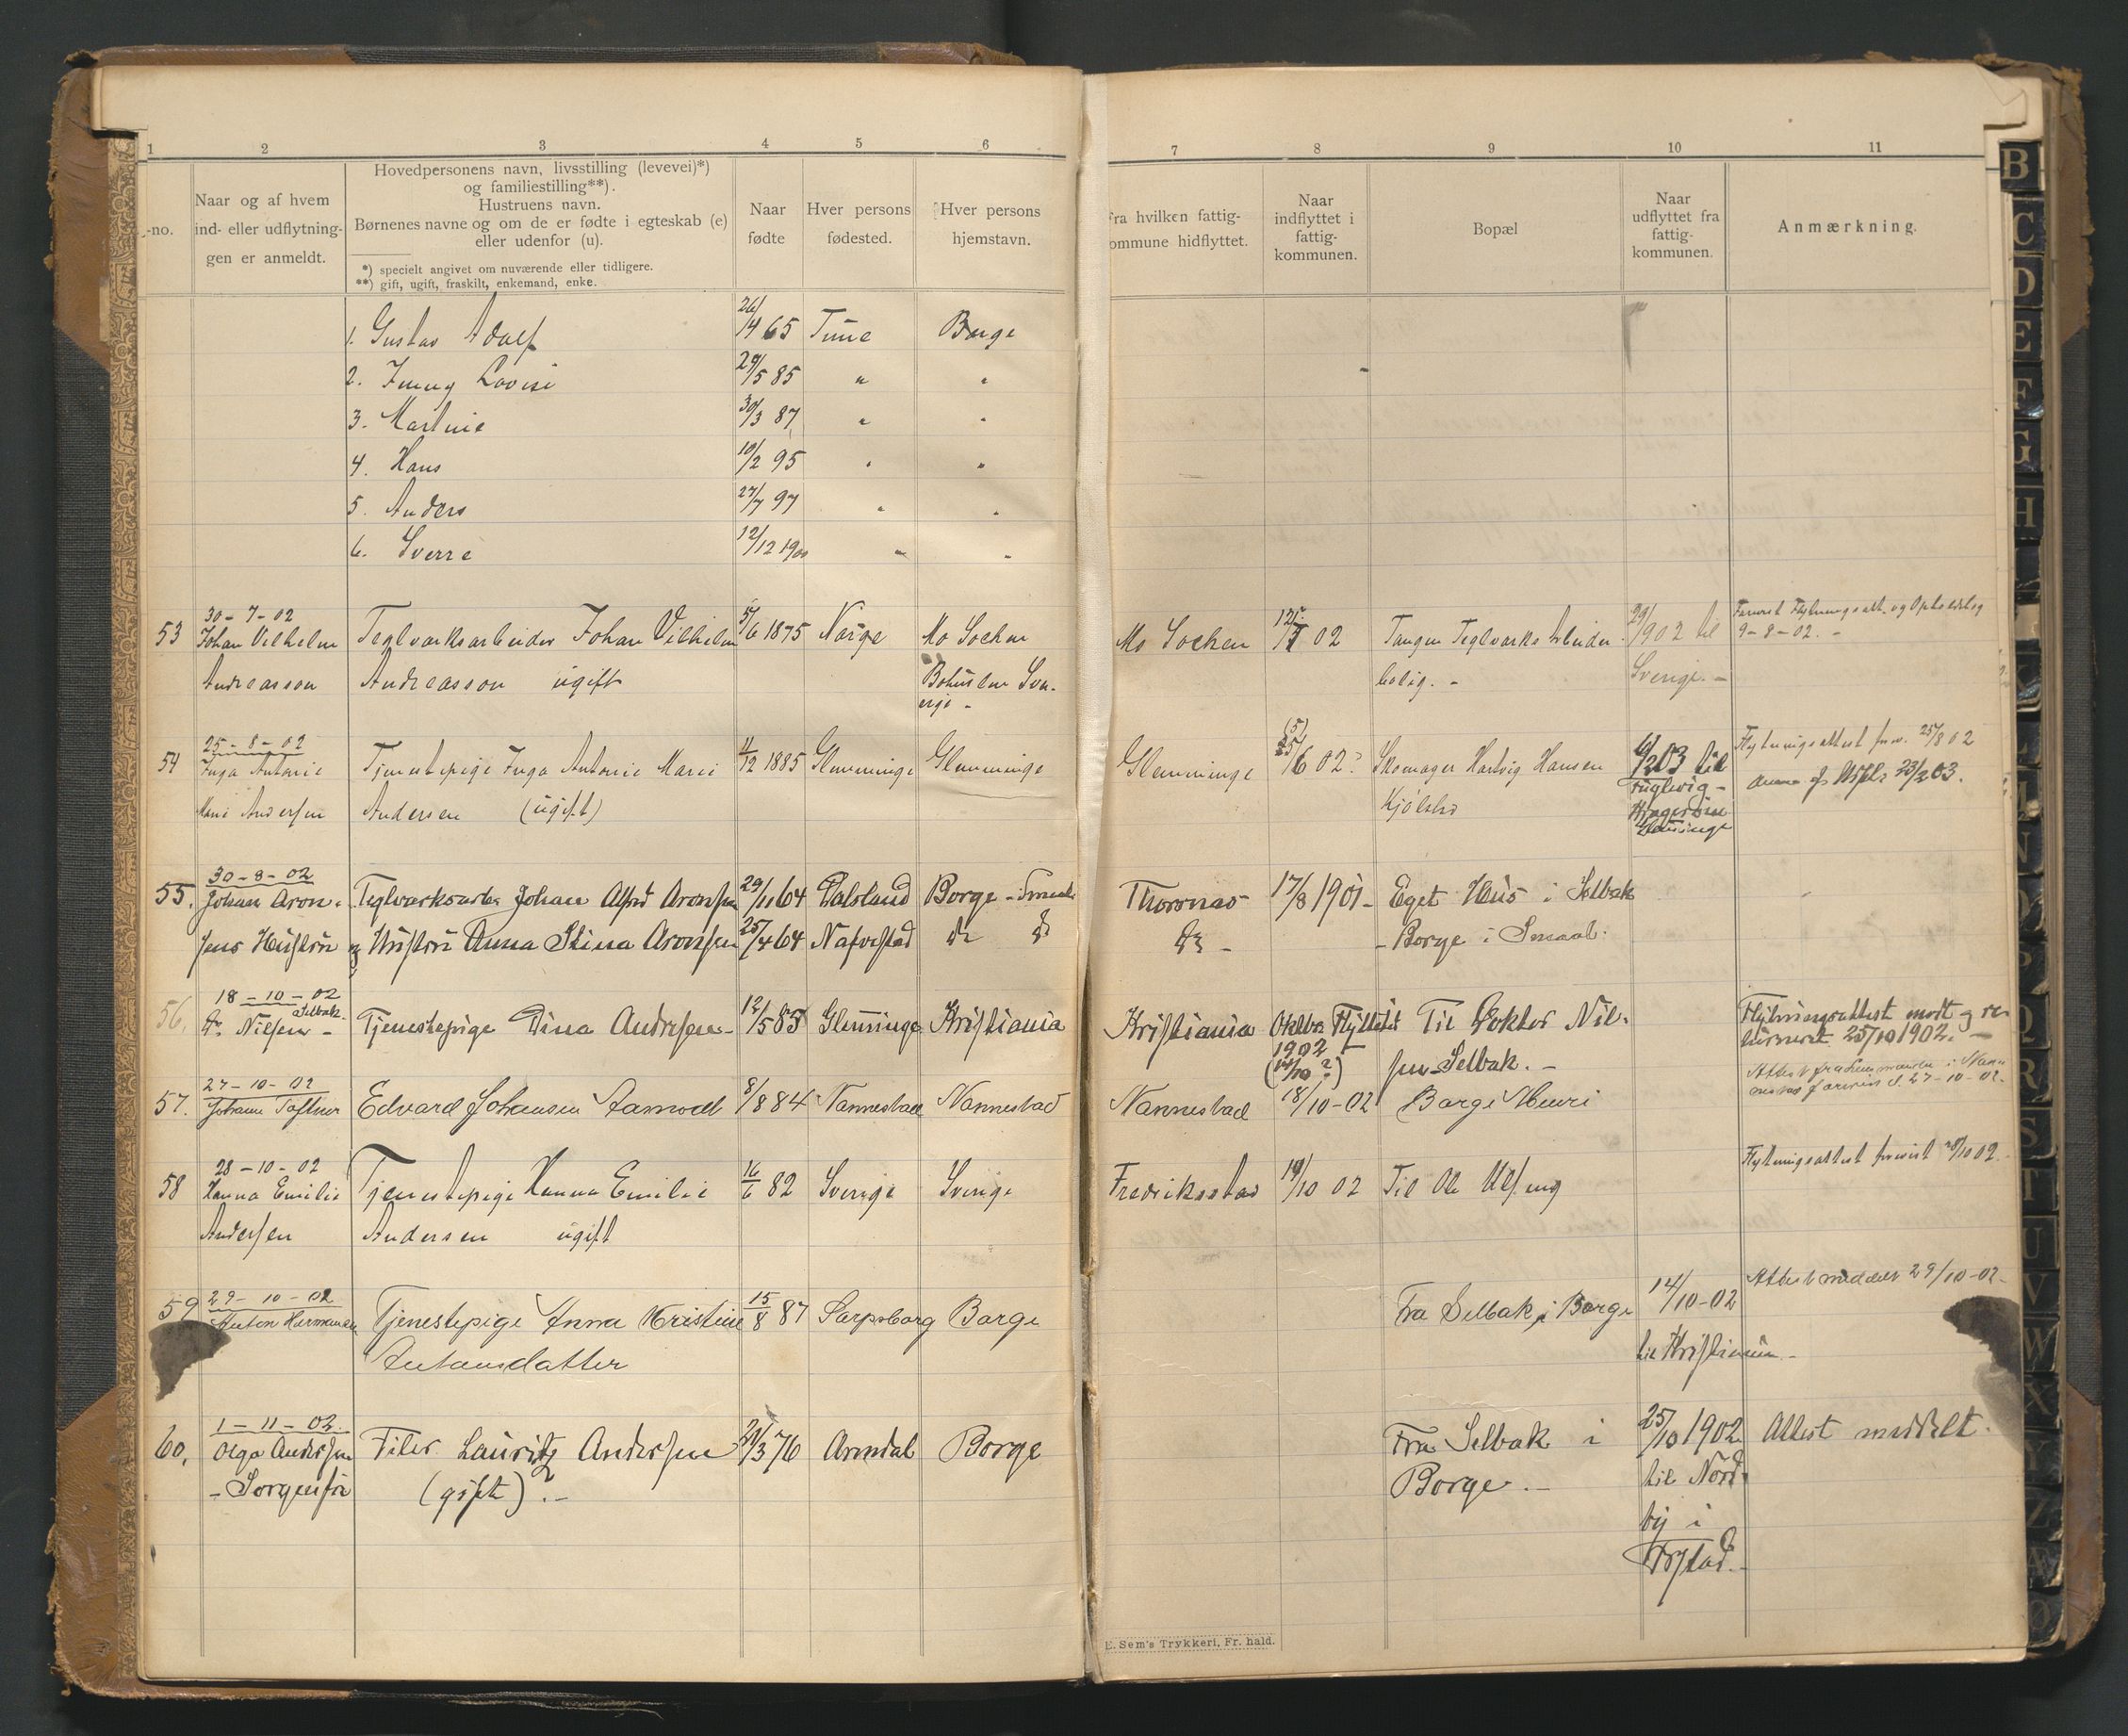 1 2 3 4 5 6 7 8 9 10 11
-no.
Naar og af hvem
ind- eller udflytnin-
gen er anmeldt.
Hovedpersonens navn, livsstilling (levevei)*)
og familiestilling**).
Hustruens navn.
Børnenes navne og om de er fødte i egteskab (e)
eller udenfor (u).
*) specielt angivet om nuværende eller tidligere.
**) gift, ugift, fraskilt, enkemand, enke.
Naar
fødte
Hver persons
fødested.
Hver persons
hjemstavn.
Fra hvilken fattig-
ommune hidflyttet.
Naar
indflyttet i
fattig-
kommunen.
Bopæl
Naar
udflyttet fra
fattig-
kommunen.
Anmærkning.
1. Gustav Adolf 26/4 65 Tune Borge
2. Jenny Lovise 29/5 85 " "
3. Martine 30/3 87 " "
4. Hans 10/2 95 " "
5. Anders 27/7 97 " "
6. Sverre 12/12 1900 " "
30-7-02
53 Johan Vilhelm Teglverksarbeider Johan Vilhelm 5/6 1875 Norge Mo Socken Mo Socken 02 Tangen Teglverks Arbeider 902 til
Andreasson Andreasson ugift Bohuslen Sve- bolig. - Sverige. -
rige -
9-8-02. -
25-8-02
54 Inga Antonie Tjenestepige Inga Antonie Marie 4/12 1885 Glemminge Glemminge Glemminge 6 02? Skomager Hartvig Hansen 03 til Flytningsattest 25/8 02
Marie Andersen Andersen (ugift) Kjølsho Fuglevig - 23/2 03.
Glemminge
30-8-02
55. Johan Aron- Johan Alfred Aronsen 29/11 64 Dalsland Borge - Thorsnes 17/8 1901- Eget Hus i Selbak
sens Hustru og Hustru Anna Stina Aronsen 25/4 64 do do do - - Borge i Smaal.
18-10-02
Selbak.
56. Dr. Nilsen - Tjenestepige Dina Andersen - 12/5 85 Glemminge Kristiania Kristiania Oktbr Flyttet Til Doktor Nil- Flytningsattest modt og re-
1902 sen Selbak. - turneret 25/10 1902. -
27-10-02
57. Johann Toftner Edvard Johansen Aamodt 8/8 84 Nannestad Nannestad Nannestad 18/10-02 Borge Meieri 27-10-02.
28-10-02
58 Hanna Emilie Tjenestepige Hanna Emilie 16/6 82 Sverige Sverige Fredriksstad 19/10 02 Til Ole Ulfeng Flytningsattest forevist 28/10 02.
Andersen Andersen ugift
29-10-02
59 Anton Hermansen Tjenestepige Anna Kristine 15/8 87 Sarpsborg Borge Fra Selbak i Borge 14/10-02 Attest meddelt 29/10-02-
Antonsdatter til Kristiania -
1-11-02.
60. Olga Andersen Filer Lauritz Andersen 29/3 76 Arendal Borge Fra Selbak i 25/10 1902 Attest meddelt.
- Sorgenfri (gift)? - Borge. - til Nord-
by i
Frstad. -
E. Sem's Trykkeri, Fr. hald.
B C D E F G H L N O P Q R S T U V W X Y Z